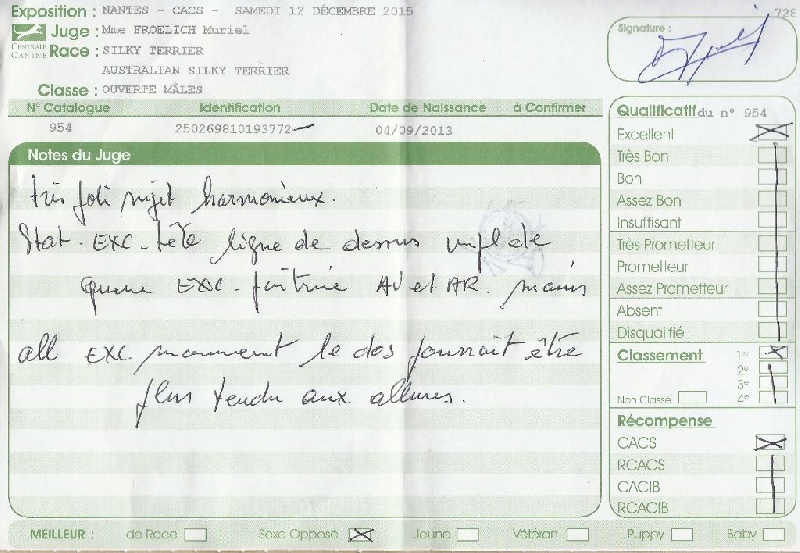 Exposition : NANTES - CACS - SAMEDI 12 DÉCEMBRE 2015
728
Juge : Mme FROELICH Muriel
CENTRALE CANINE
Race : SILKY TERRIER
AUSTRALIAN SILKY TERRIER
Classe : OUVERTE MÂLES
Signature :
N° Catalogue Identification Date de Naissance à Confirmer
954 250269810193772 04/09/2013
Notes du Juge
très joli sujet harmonieux.
Stat. EXC - tête ligne de dessus de
queue EXC. poitrine AV et AR.
all EXC. mouvement le dos pourrait être
plus tendu aux allures.
Qualificatif du n° 954
Excellent
Très Bon
Bon
Assez Bon
Insuffisant
Très Prometteur
Prometteur
Assez Prometteur
Absent
Disqualifié
Classement 1er
2e
3e
Non Classé 4e
Récompense
CACS
RCACS
CACIB
RCACIB
MEILLEUR : de Race Sexe Opposé Jeune Vétéran Puppy Baby